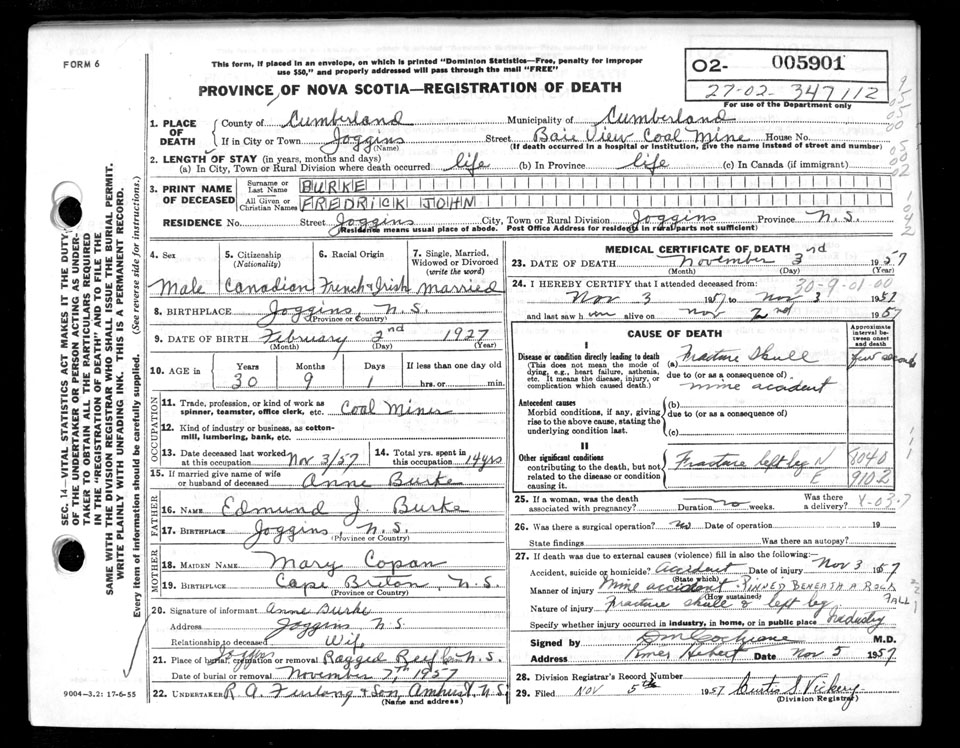 FORM 6
This form, if placed in an envelope, on which is printed "Dominion Statistics—Free, penalty for improper
use $50," and properly addressed will pass through the mail "FREE"
PROVINCE OF NOVA SCOTIA—REGISTRATION OF DEATH
02- 005901
27-02- 347112
For use of the Department only
1. PLACE OF DEATH
County of Cumberland Municipality of Cumberland
If in City or Town Joggins (Name) Street Baie View Coal Mine House No.
(If death occurred in a hospital or institution, give the name instead of street and number)
2. LENGTH OF STAY (in years, months and days)
(a) In City, Town or Rural Division where death occurred life (b) In Province life (c) In Canada (if immigrant)
3. PRINT NAME OF DECEASED
Surname or Last Name BURKE
All Given or Christian Names FREDRICK JOHN
RESIDENCE No. Street Joggins City, Town or Rural Division Joggins Province N.S.
(Residence means usual place of abode. Post Office Address for residents in rural parts not sufficient)
4. Sex Male
5. Citizenship (Nationality) Canadian
6. Racial Origin French & Irish
7. Single, Married, Widowed or Divorced (write the word) Married
8. BIRTHPLACE Joggins, N.S.
(Province or Country)
9. DATE OF BIRTH February 2nd 1927
(Month) (Day) (Year)
10. AGE in Years 30 Months 9 Days 1 If less than one day old hrs. or min.
OCCUPATION
11. Trade, profession, or kind of work as spinner, teamster, office clerk, etc. Coal Miner
12. Kind of industry or business, as cotton-mill, lumbering, bank, etc.
13. Date deceased last worked at this occupation Nov 3/57
14. Total yrs. spent in this occupation 14 yrs
15. If married give name of wife or husband of deceased Anne Burke
FATHER
16. NAME Edmund J Burke
17. BIRTHPLACE Joggins N.S.
(Province or Country)
MOTHER
18. MAIDEN NAME Mary Copan
19. BIRTHPLACE Cape Briton, N.S.
(Province or Country)
20. Signature of informant Anne Burke
Address Joggins N.S.
Relationship to deceased Wife
21. Place of burial, cremation or removal Joggins Ragged Reef N.S.
Date of burial or removal November 7th, 1957
22. UNDERTAKER R. A. Furlong & Son, Amherst, N.S.
(Name and address)
MEDICAL CERTIFICATE OF DEATH
23. DATE OF DEATH November 3rd 1957
(Month) (Day) (Year)
30-9-01 00
24. I HEREBY CERTIFY that I attended deceased from:
Nov 3 1957 to Nov 3 1957
and last saw him alive on Nov 2nd 1957
CAUSE OF DEATH
Approximate interval between onset and death
I
Disease or condition directly leading to death
(This does not mean the mode of dying, e.g., heart failure, asthenia, etc. It means the disease, injury, or complication which caused death.)
(a) Fracture Skull few seconds
due to (or as a consequence of)
mine accident
Antecedent causes
Morbid conditions, if any, giving rise to the above cause, stating the underlying condition last.
(b)
due to (or as a consequence of)
(c)
II
Other significant conditions
contributing to the death, but not related to the disease or condition causing it.
Fracture left leg N 8040
E 9102
25. If a woman, was the death associated with pregnancy? no Duration weeks. Was there a delivery?
26. Was there a surgical operation? no Date of operation 19
State findings Was there an autopsy?
27. If death was due to external causes (violence) fill in also the following:
Accident, suicide or homicide? Accident Date of injury Nov 3 1957
(State which)
Manner of injury Mine accident - PINNED BENEATH A ROCK FALL
(How sustained)
Nature of injury Fracture skull & left leg
Specify whether injury occurred in industry, in home, or in public place Industry
Signed by D M Cochrane M.D.
Address River Hebert Date Nov 5 1957
28. Division Registrar's Record Number
29. Filed Nov 5th 1957 Curtis S. Vickery
(Division Registrar)
SEC. 14—VITAL STATISTICS ACT MAKES IT THE DUTY
OF THE UNDERTAKER OR PERSON ACTING AS UNDER-
TAKER TO OBTAIN ALL THE PARTICULARS REQUIRED
IN THE "REGISTRATION OF DEATH" AND TO FILE THE
SAME WITH THE DIVISION REGISTRAR WHO SHALL ISSUE THE BURIAL PERMIT.
WRITE PLAINLY WITH UNFADING INK. THIS IS A PERMANENT RECORD.
Every item of information should be carefully supplied. (See reverse side for instructions.)
9004-3.2: 17-6-55